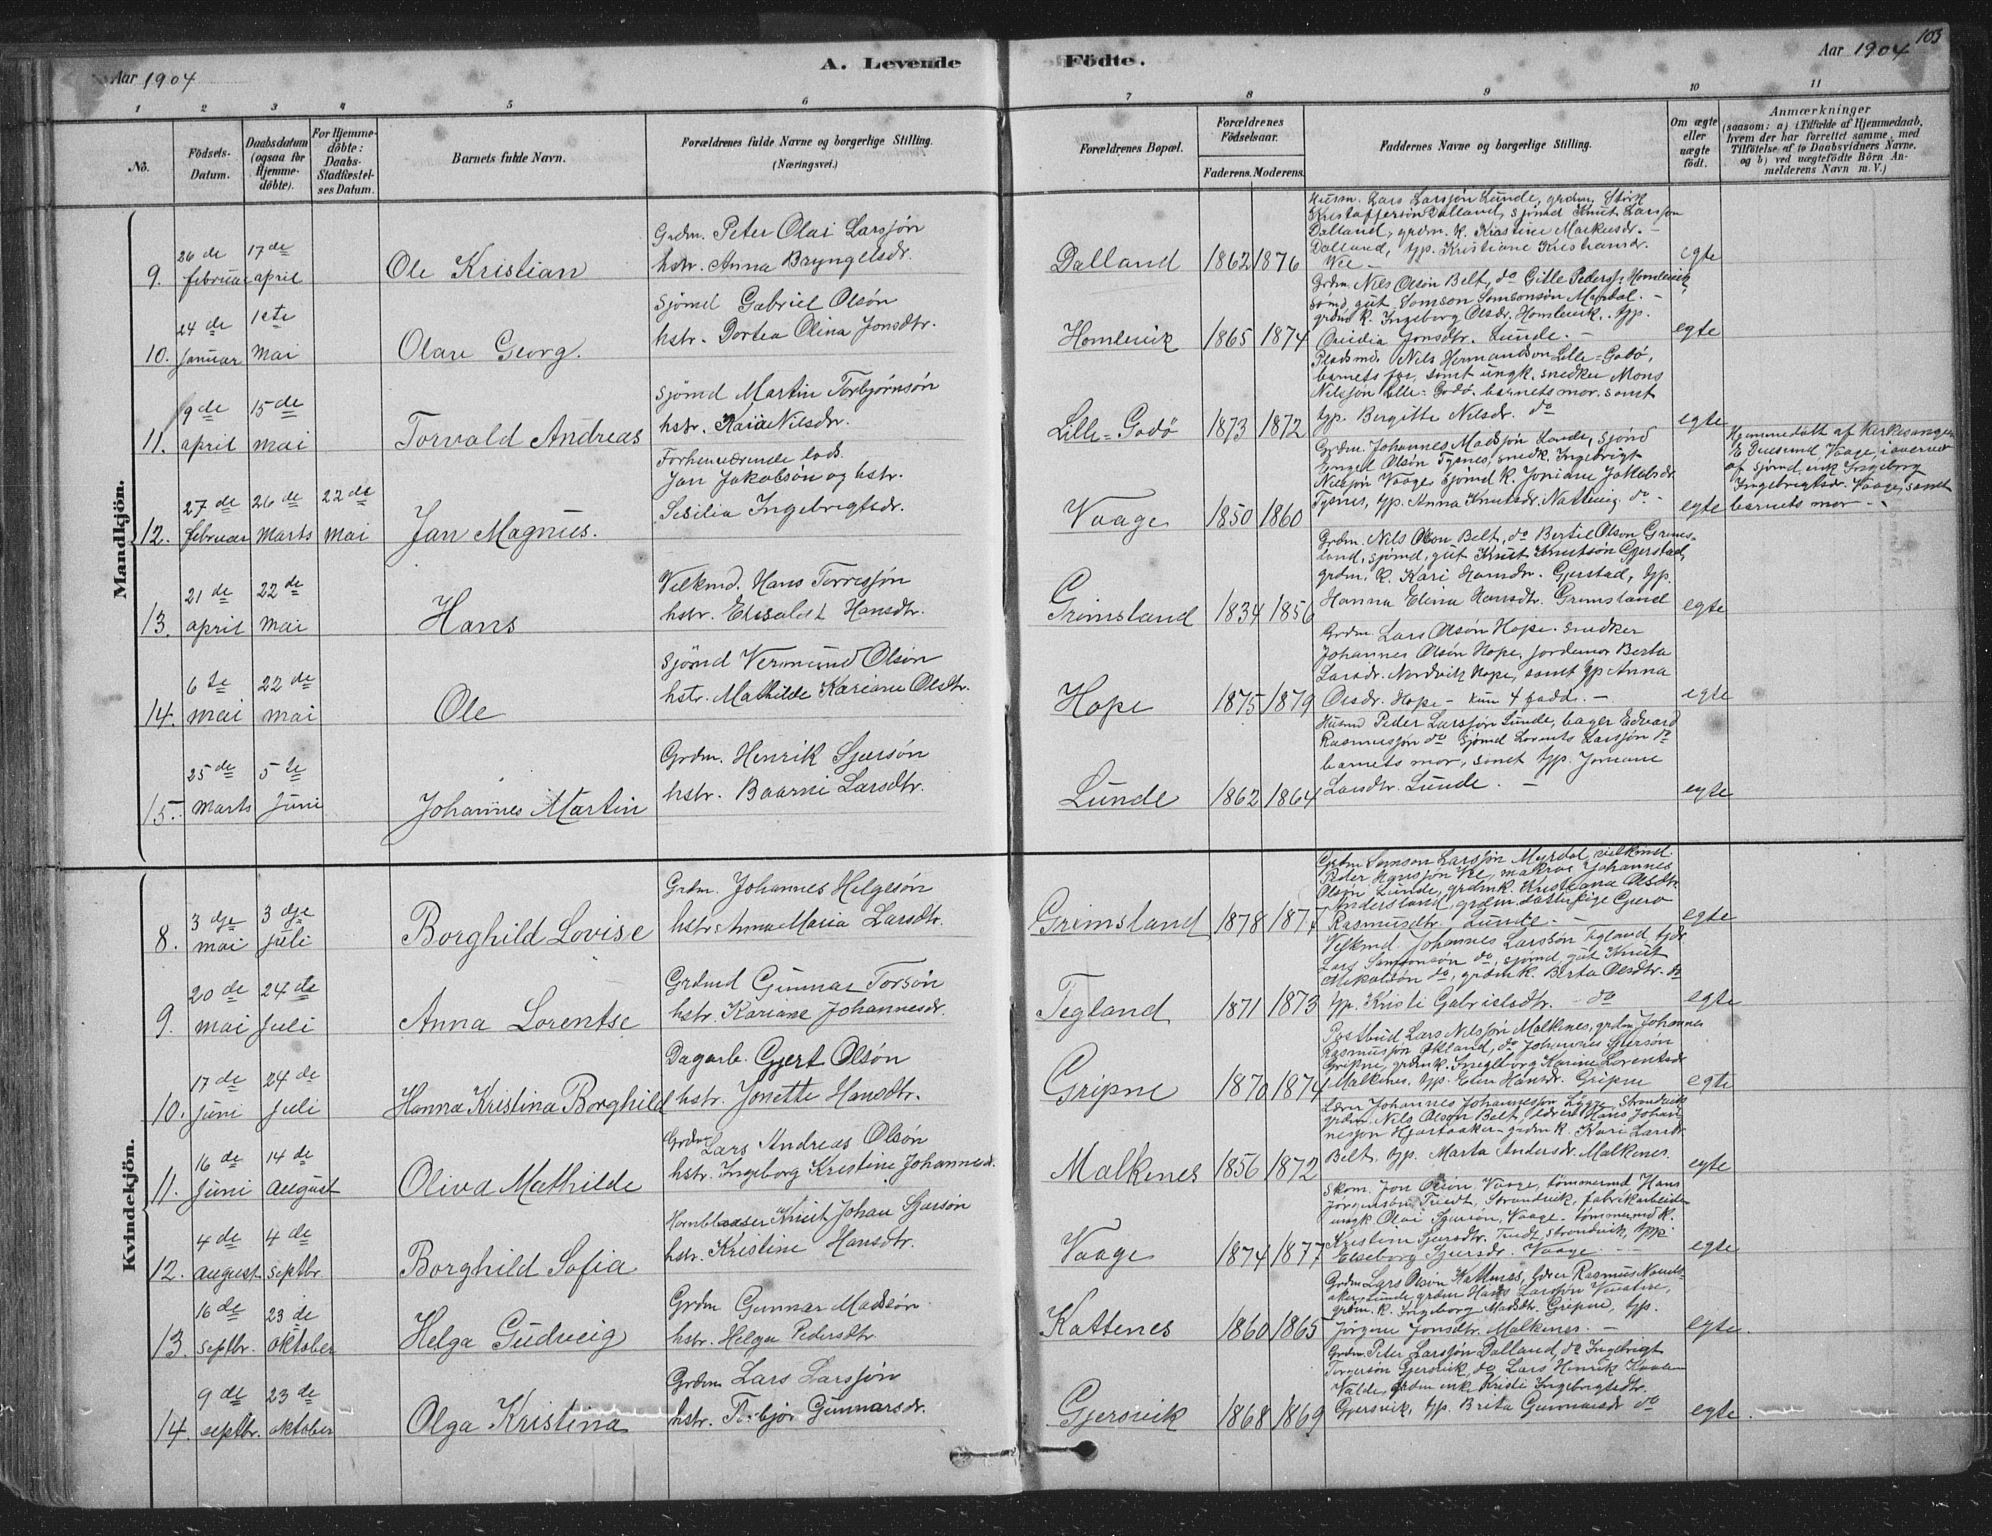 Aar 1904
A. Levende Födte.
Aar 1904
103
1 2 3 4 5 6 7 8 9 10 11
No.
Födsels-Datum.
Daabsdatum (ogsaa for Hjemme-döbte).
For Hjemme-döbte: Daabs-Stadfæstel-ses Datum.
Barnets fulde Navn.
Forældrenes fulde Navne og borgerlige Stilling.
(Næringsvei.)
Forældrenes Bopæl.
Forældrenes Födselsaar.
Faderens. Moderens.
Faddernes Navne og borgerlige Stilling.
Om ægte eller uægte födt.
Anmærkninger
(saasom: a) i Tilfælde af Hjemmedaab, hvem der har forrettet samme, med Tilföielse af to Daabsvidners Navne. og b) ved uægtefödte Börn An-melderens Navn m. V.)
Mandkjön.
9. 26de februar 17de april Ole Kristian
Grdm. Peter Olai Larsjøn
hstr. Anna Bryngelsdr.
Dalland 1862 1876
Husm. Lars Larsjøn Lunde, grdm.
Kristoffersøn Dalland, sjømd Knut Larsjøn
Dalland, grdm. k. Kristine Markusdr. -
Dalland, typ. Kristiane Kristiansdr.
egte
10. 24de Januar 1ste mai Olav Georg.
Sjømd Gabriel Olsøn
hstr. Dortea Olina Jonsdtr.
Homlevik 1865 1874
Grdm. Nils Olsøn Belt, do Gitle Peders. Homlevik,
sømd gut Samson Samsonsøn Myrdal. -
grdm k. Ingeborg Olsdr. Homlevik. typ.
Jonsdtr. Lunde. -
egte
11. 9de april 15de mai Torvald Andreas
Sjømd Martin Torbjørnsøn
hstr. Kaia Nilsdr.
Lille-Godø 1873 1872
Pladsmd. Nils Hermandson Lille-Godø,
barnets far, samt ungk. snedker Mons
Nilsjøn Lille-Godø. barnets mor. samt
typ. Bergitte Nilsdr. do
egte
12. 27de februar 26de Marts 22de mai Jan Magnus.
Forhenværende lods.
Jan Jakobsøn og hstr.
Sesilia Ingebrigtsdr.
Vaage 1850 1860
Grdm. Johannes Madsjøn Lunde, sjømd
Engel Olsøn Tysnes, snedk. Ingebrigt
Nilsjøn Vaage, sjømd k. Joniane Jakobsdr.
Tysnes, typ. Anna Knutsdr. Nattevig. do -
egte
Hjemmedøbt af Kirkesanger
E Vaage, i overvær
af sjømd. enk Ingeborg
Ingebrigtsdr. Vaage, samt
barnets mor -
13. 21de april 22de mai Hans
Velkmd. Hans Torresjøn
hstr. Elisabet Hansdtr.
Grimsland 1834 1856
Grdm. Nils Olson Belt, do Bertil Olson Grims-
land, sjømd, gut Knut Knutsøn Gjerstad,
grdm, k. Kari Hansdr. Gjerstad, typ.
Hanna Elina Hansdtr. Grimsland
egte
14. 6te mai 22de mai Ole
Sjømd Vermund Olsøn
hstr. Mathilde Kariane Olsdtr.
Hope 1875 1879
Grdm. Lars Olsøn Hope. snedker
Johannes Olsøn Hope, jordemor Berta
Larsdr. Nordvik Hope, samt typ Anna
Olsdr. Hope - kun 4 fadd. -
egte
15. 25de marts 5te Juni Johannes Martin
Grdm. Henrik Sjursøn
hstr. Baarni Larsdtr.
Lunde 1862 1864
Husmd Peder Larsjøn Lunde, bager Edvard
Rasmussjøn do Sjømd Lorents Larsjøn do
barnets mor, samt typ. Joniane
Larsdtr. Lunde. -
egte
Kvindekjön.
8. 3dje mai 3dje juli Borghild Lovise
Grdm. Johannes Helgesøn
hstr. Anna Maria Larsdtr.
Grimsland 1878 1877
Grdm Samson Larsjøn Myrdal, velkmd.
Peder Hansjøn Vee, Johannes
Olsøn Lunde, grdm k. Kristiana Olsdtr.
grdm. datter, pige Gjerø
Rasmusdtr. Lunde. -
egte
9. 20de mai 24de Juli Anna Lorentse
Grdmd Gunnar Torsøn
hstr. Kariane Johannesdr.
Tegland 1871 1873
Velkmd. Johannes Larssøn Tegland, tjdr
Lars Samsonsøn do, sjømd, gut Knut
Mikalsøn do, grdm k. Berta Olsdtr. do
typ. Kristi Gabrielsdtr. - do
egte
10. 17de juni 24de juli Hanna Kristina Borghild
Dagarb. Gjert Olsøn
hstr. Jonette Hansdtr.
Gripne 1870 1874
Postbud Lars Nilsjøn Malkenes, grdm Johannes
Rasmusjøn Økland, do Johannes Sjursøn
Gripne, grdm k. Ingeborg Karine Lorentsdr
Malkenes, typ. Elen Hansdr. Gripne
egte
11. 16de Juni 14de August Oliva Mathilde
Grdm Lars Andreas Olsøn
hstr. Ingeborg Kristine Johannesd.
Malkenes 1856 1872
Lærer Johannes Johannesjøn Strandvik
grdm. Nils Olson Belt, lærer Hans Johan-
nesjøn Hjartaaker grdm k. Kari Larsdr
Belt. typ. Marta Andersdr. Malkenes.
egte
12. 4de august 4de septbr. Borghild Sofia
Hornblaaser Knut Johan Sjursøn
hstr. Kristine Hansdtr.
Vaage 1874 1877
Skom. Jon Olsøn Vaage, tømmermd Hans
Jørgensøn Tuedt, Strandvik, fabrikarbeider
ungk Olai Sjursøn, Vaage. tømmermd k.
Kristine Sjursdtr. Tuedt, Strandvik, typ.
Elseborg Sjursdr. Vaage. - -
egte
13. 16de septbr. 23de oktober Helga Gudveig
Grdm Gunnar Madsøn
hstr. Helga Pedersdtr.
Kattenes 1860 1865
Grdm Lars Olsøn Kattenes, lærer Rasmus
Lunde, grdm Hans Larsjøn
grdm. k. Ingeborg Madsdtr. Gripne, typ.
Jørgine Jonsdtr. Malkenes. -
egte.
14. 9de septbr. 23de oktober Olga Kristina
Grdm Lars Larsjøn
hstr. Torbjør Gunnarsdr.
Gjersvik 1868 1869
Grdm. Peter Larsjøn Dalland, do Ingebrigt
Torgersøn Gjersvik, do Lars Henrik
Valde, grdm enk. Kristi Ingebrigtsdtr.
Gjersvik, typ. Brita Gunnarsdr do
egte.